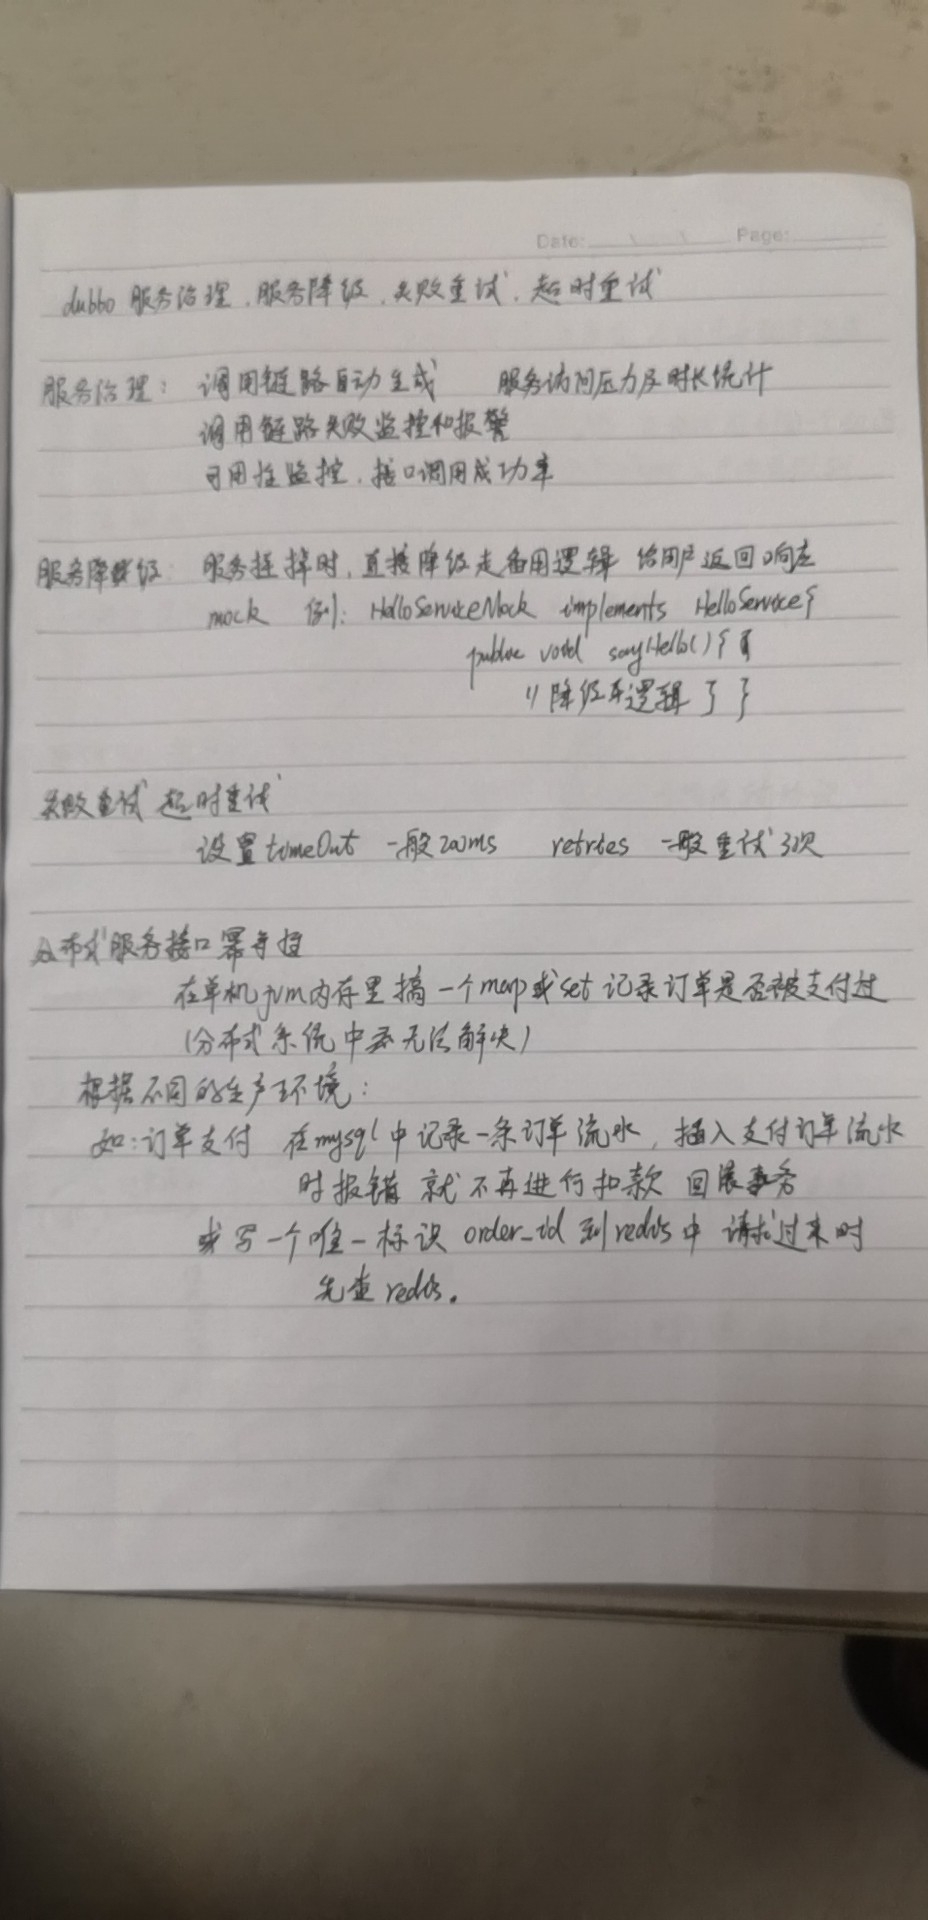 Date: Page:
dubbo 服务治理、服务降级、失败重试、超时重试
服务治理： 调用链路自动生成 服务访问压力及时长统计
调用链路失败监控和报警
可用性监控，接口调用成功率
服务降级： 服务挂掉时，直接降级走备用逻辑 给用户返回响应
mock 例：HelloServiceMock implements HelloService{
public void sayHello(){
//降级 逻辑 } }
失败重试 超时重试
设置timeOut 一般200ms retries 一般重试3次
分布式服务接口幂等性
在单机jvm内存里搞一个map或set记录订单是否被支付过
(分布式系统中 无法解决)
根据不同的生产环境：
如：订单支付 在mysql中记录一条订单流水，插入支付订单流水
时报错 就不再进行扣款 回滚事务
或写一个唯一标识 order_id 到redis中 请求过来时
先查redis。